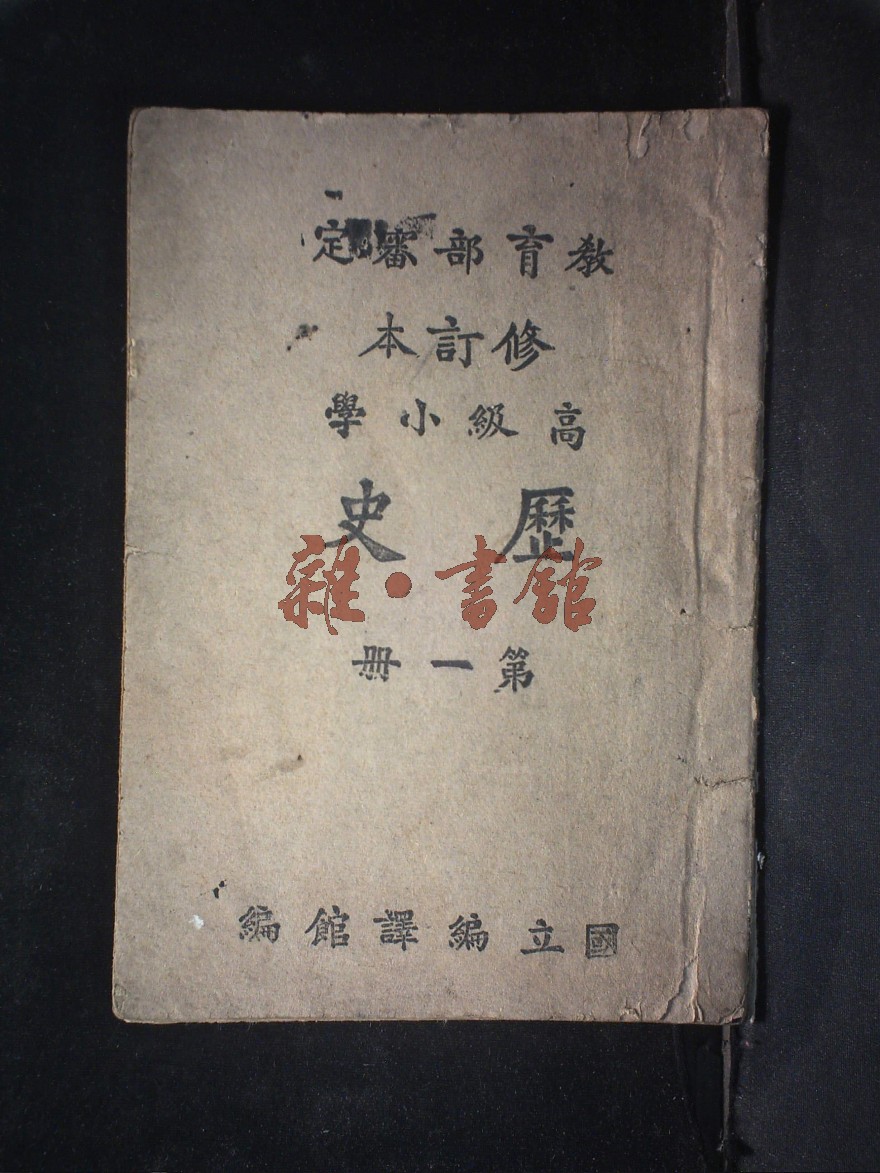 教育部審定
修訂本
高級小學
歷史
雜·書館
第一冊
國立編譯館編